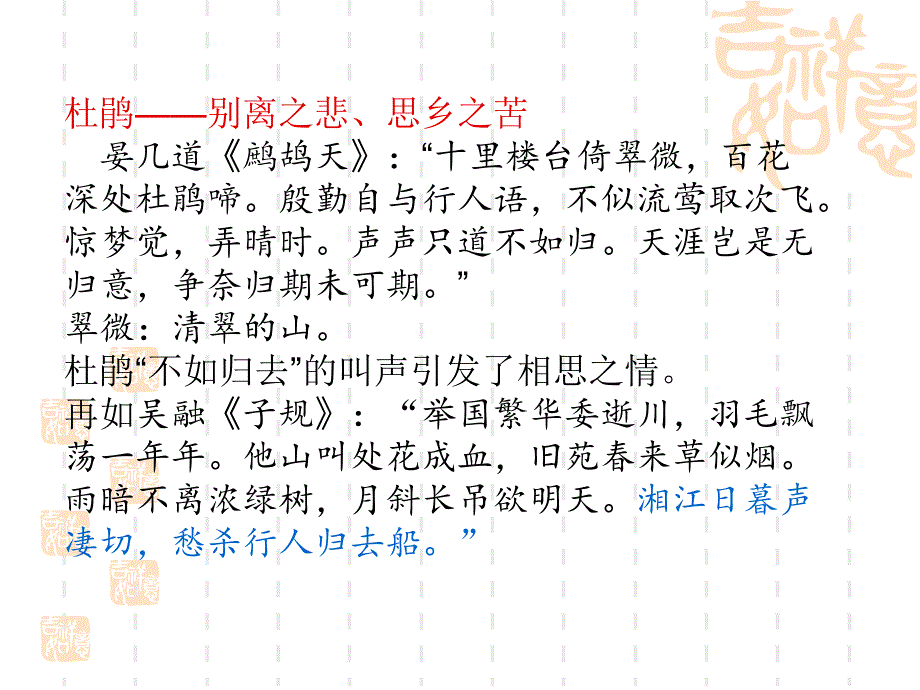 吉祥如意
杜鹃——别离之悲、思乡之苦
晏几道《鹧鸪天》:“十里楼台倚翠微，百花
深处杜鹃啼。殷勤自与行人语，不似流莺取次飞。
惊梦觉，弄晴时。声声只道不如归。天涯岂是无
归意，争奈归期未可期。”
翠微：清翠的山。
杜鹃“不如归去”的叫声引发了相思之情。
再如吴融《子规》：“举国繁华委逝川，羽毛飘
荡一年年。他山叫处花成血，旧苑春来草似烟。
雨暗不离浓绿树，月斜长吊欲明天。湘江日暮声
凄切，愁杀行人归去船。”
吉祥如意
吉祥如意
吉祥如意
吉祥如意
吉祥如意
吉祥如意